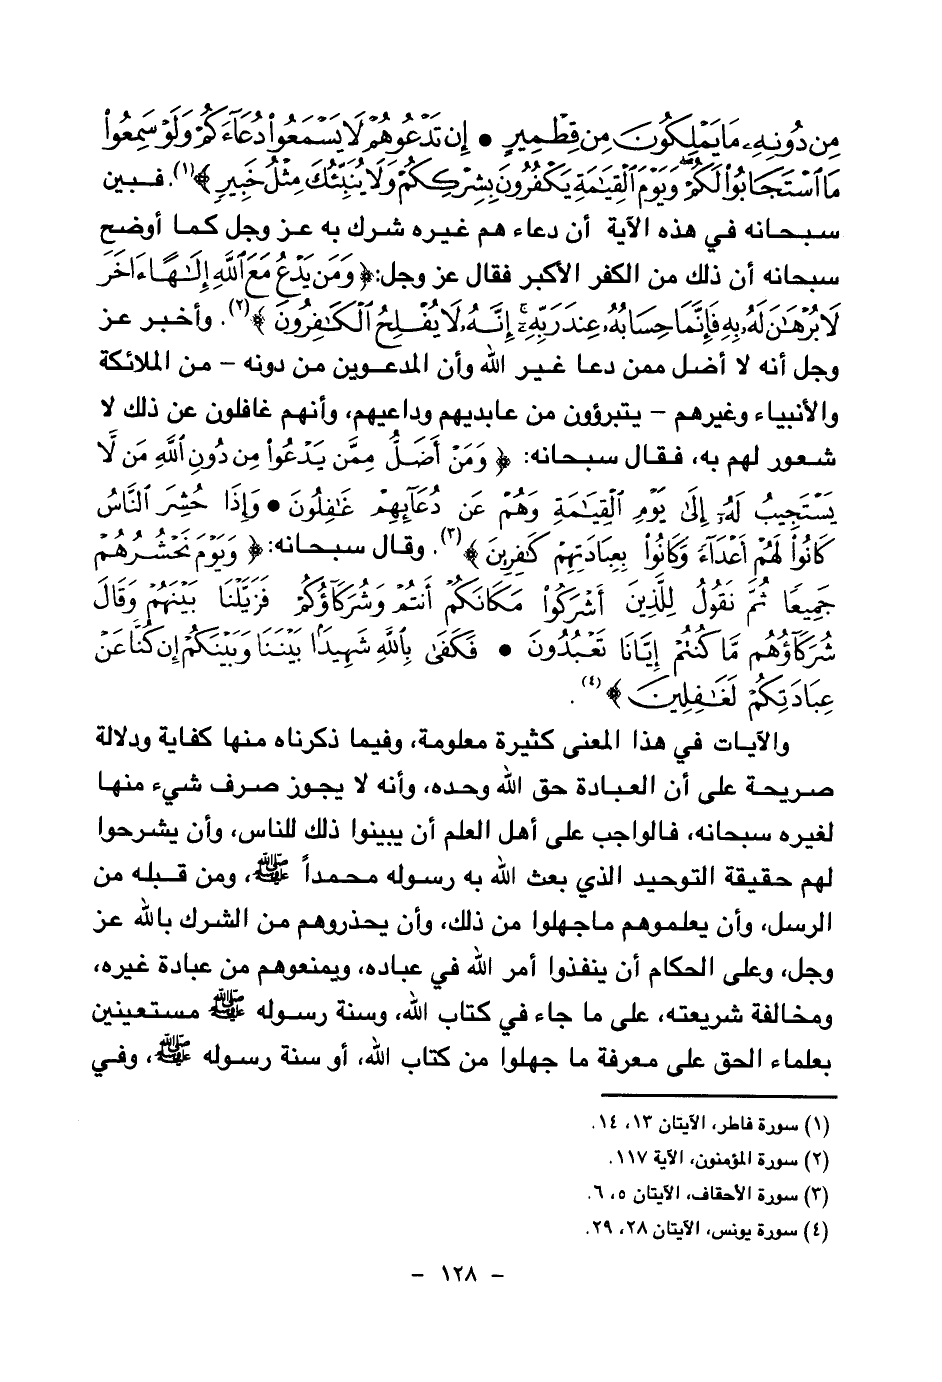 مِن دُونِهِۦ مَا يَمْلِكُونَ مِن قِطْمِيرٍ • إِن تَدْعُوهُمْ لَا يَسْمَعُوا۟ دُعَآءَكُمْ وَلَوْ سَمِعُوا۟
مَا ٱسْتَجَابُوا۟ لَكُمْ ۖ وَيَوْمَ ٱلْقِيَـٰمَةِ يَكْفُرُونَ بِشِرْكِكُمْ وَلَا يُنَبِّئُكَ مِثْلُ خَبِيرٍ﴾(١). فبين
سبحانه في هذه الآية أن دعاء هم غيره شرك به عز وجل كما أوضح
سبحانه أن ذلك من الكفر الأكبر فقال عز وجل:﴿وَمَن يَدْعُ مَعَ ٱللَّهِ إِلَـٰهًا ءَاخَرَ
لَا بُرْهَـٰنَ لَهُۥ بِهِۦ فَإِنَّمَا حِسَابُهُۥ عِندَ رَبِّهِۦٓ ۚ إِنَّهُۥ لَا يُفْلِحُ ٱلْكَـٰفِرُونَ﴾(٢). وأخبر عز
وجل أنه لا أضل ممن دعا غير الله وأن المدعوين من دونه – من الملائكة
والأنبياء وغيرهم – يتبرؤون من عابديهم وداعيهم، وأنهم غافلون عن ذلك لا
شعور لهم به، فقال سبحانه: ﴿وَمَنْ أَضَلُّ مِمَّن يَدْعُوا۟ مِن دُونِ ٱللَّهِ مَن لَّا
يَسْتَجِيبُ لَهُۥٓ إِلَىٰ يَوْمِ ٱلْقِيَـٰمَةِ وَهُمْ عَن دُعَآئِهِمْ غَـٰفِلُونَ • وَإِذَا حُشِرَ ٱلنَّاسُ
كَانُوا۟ لَهُمْ أَعْدَآءً وَكَانُوا۟ بِعِبَادَتِهِمْ كَـٰفِرِينَ﴾(٣). وقال سبحانه:﴿وَيَوْمَ نَحْشُرُهُمْ
جَمِيعًا ثُمَّ نَقُولُ لِلَّذِينَ أَشْرَكُوا۟ مَكَانَكُمْ أَنتُمْ وَشُرَكَآؤُكُمْ فَزَيَّلْنَا بَيْنَهُمْ وَقَالَ
شُرَكَآؤُهُم مَّا كُنتُمْ إِيَّانَا تَعْبُدُونَ • فَكَفَىٰ بِٱللَّهِ شَهِيدًۢا بَيْنَنَا وَبَيْنَكُمْ إِن كُنَّا عَنْ
عِبَادَتِكُمْ لَغَـٰفِلِينَ﴾(٤).
والآيات في هذا المعنى كثيرة معلومة، وفيما ذكرناه منها كفاية ودلالة
صريحة على أن العبادة حق الله وحده، وأنه لا يجوز صرف شيء منها
لغيره سبحانه، فالواجب على أهل العلم أن يبينوا ذلك للناس، وأن يشرحوا
لهم حقيقة التوحيد الذي بعث الله به رسوله محمداً ﷺ، ومن قبله من
الرسل، وأن يعلموهم ماجهلوا من ذلك، وأن يحذروهم من الشرك بالله عز
وجل، وعلى الحكام أن ينفذوا أمر الله في عباده، ويمنعوهم من عبادة غيره،
ومخالفة شريعته، على ما جاء في كتاب الله، وسنة رسوله ﷺ مستعينين
بعلماء الحق على معرفة ما جهلوا من كتاب الله، أو سنة رسوله ﷺ، وفي
(١) سورة فاطر، الآيتان ١٣، ١٤.
(٢) سورة المؤمنون، الآية ١١٧.
(٣) سورة الأحقاف، الآيتان ٥، ٦.
(٤) سورة يونس، الآيتان ٢٨، ٢٩.
– ١٢٨ –